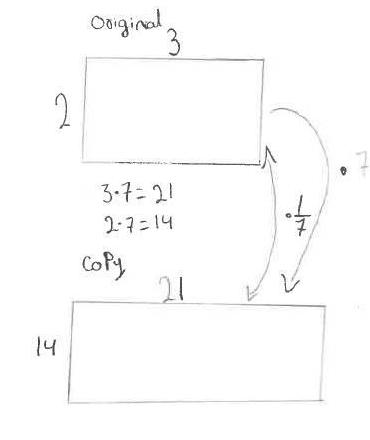 Original
3
2
· 7
3·7=21
2·7=14
· 1/7
Copy
21
14